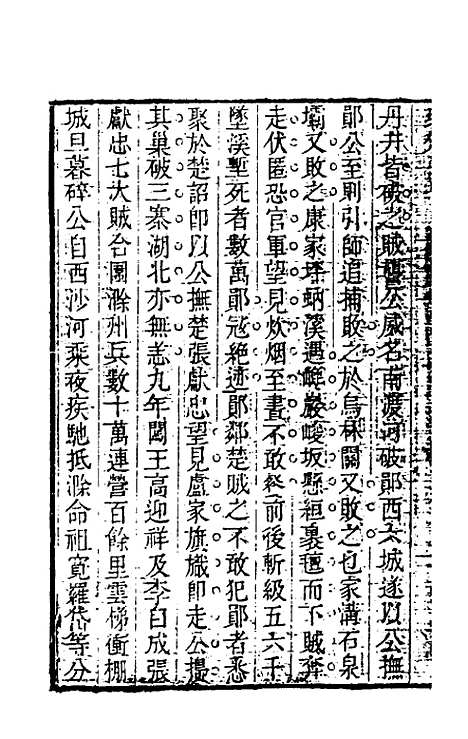 丹井皆破之賊憚公威名南渡河破鄖西六城遂以公撫
鄖公至則引師追捕敗之於烏林關又敗之也家溝石泉
壩又敗之康家坪蚋溪遇巉巖峻坂懸絙裹氊而下賊奔
走伏匿恐官軍望見炊烟至晝不敢爂前後斬級五六千
墜溪塹死者數萬鄖寇絶迹鄖鄰楚賊之不敢犯鄖者悉
聚於楚詔卽以公撫楚張獻忠望見盧家旗幟卽走公搗
其巢破三寨湖北亦無恙九年闖王高迎祥及李自成張
獻忠七大賊合圍滁州兵數十萬連營百餘里雲梯衝棚
城旦暮碎公自西沙河乘夜疾馳抵滁命祖寬羅岱等分